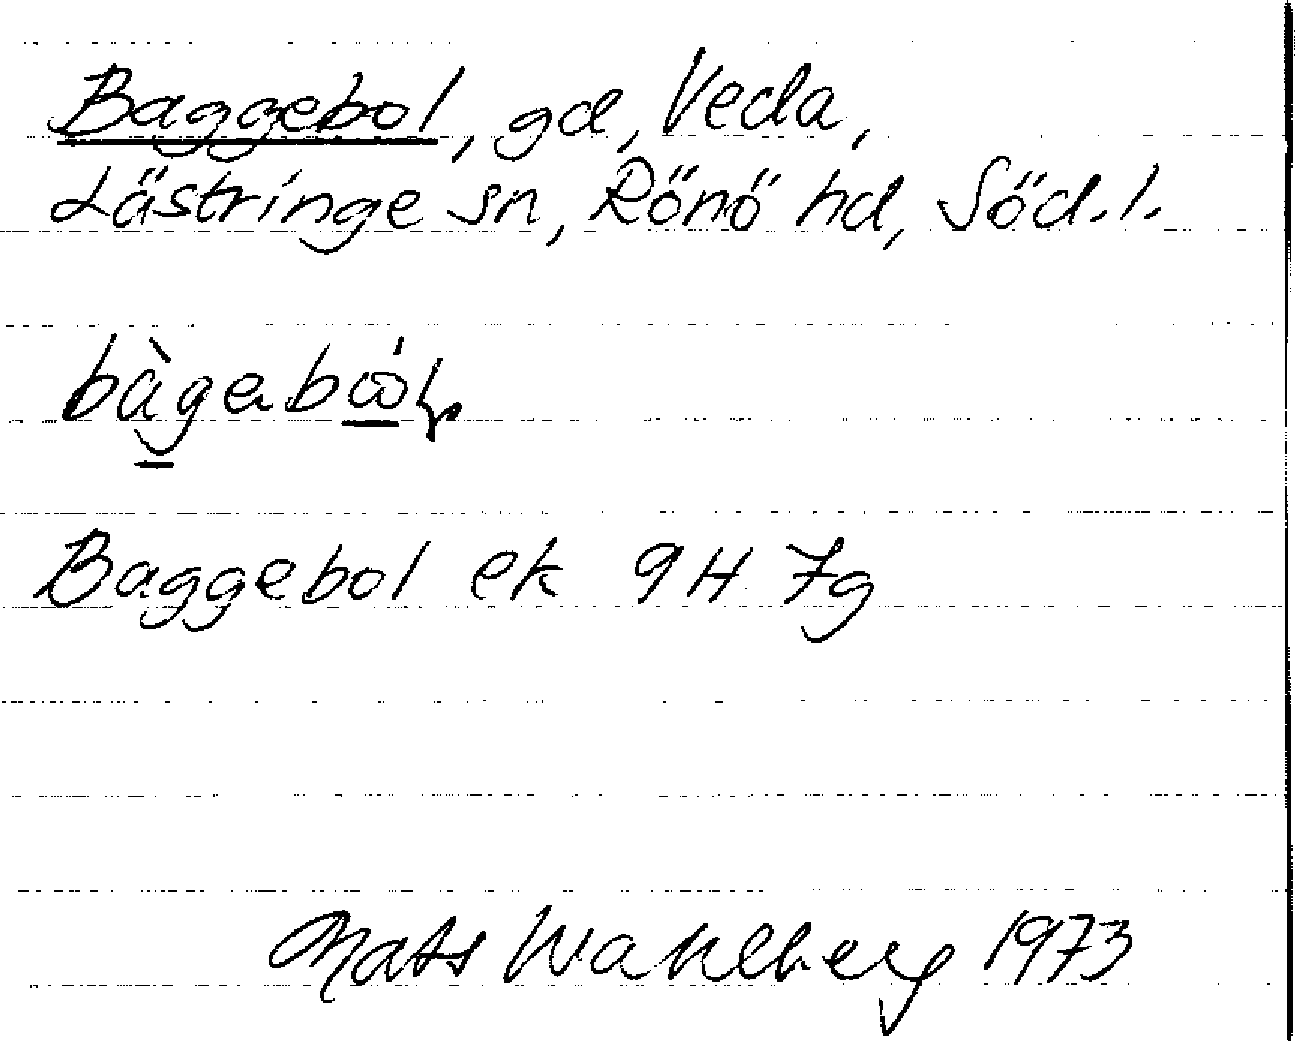 Baggebol, gd, Veda,
Lästringe sn, Rönö hd, Söd.l.
Baggebol ek 9H 7g
Mats Wahlberg 1973